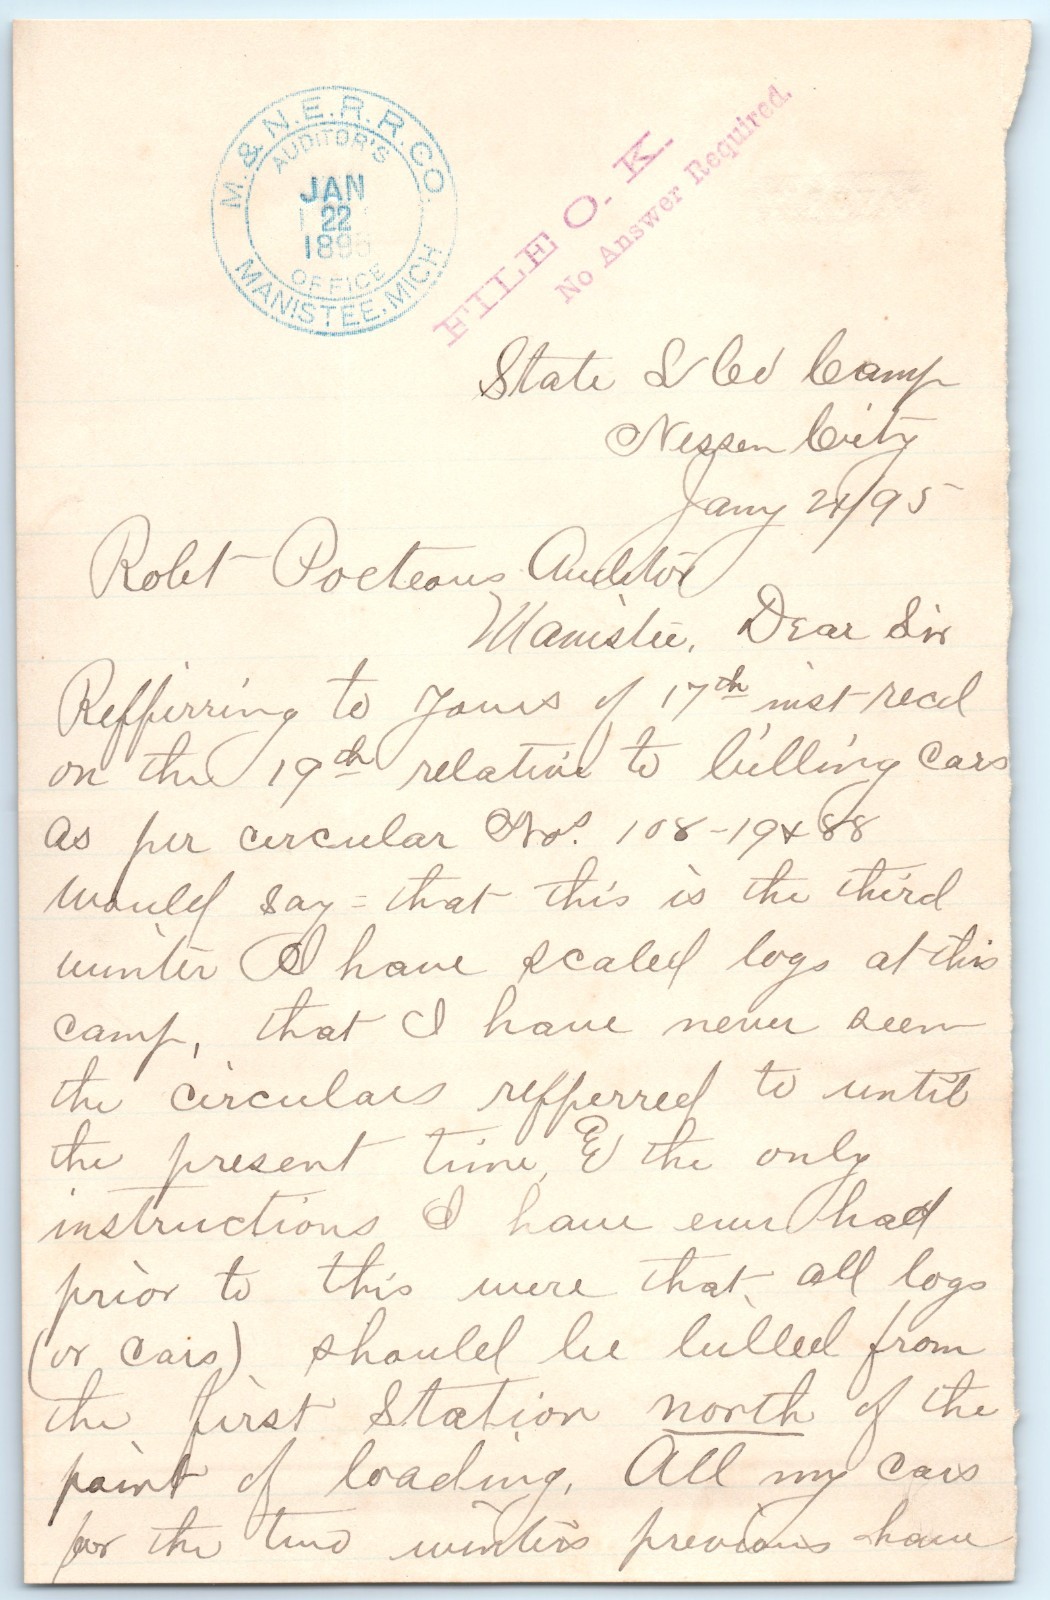 M. & N. E. R. R. CO.
AUDITOR'S
JAN
22
1895
OFFICE
MANISTEE, MICH
FILE O. K.
No Answer Required.
State L Co Camp
Nessen City
Jany 21/95
Robt Porteous Auditor
Manistee, Dear Sir
Reffirring to yours of 17th inst recd
on the 19th relative to billing cars
as per circular Nos. 108-19 & 88
would say = that this is the third
winter I have scaled logs at this
camp, that I have never seen
the circulars refferred to until
the present time, & the only
instructions I have ever had
prior to this were that all logs
(or cars) should be billed from
the first Station north of the
point of loading. All my cars
for the two winters previous have